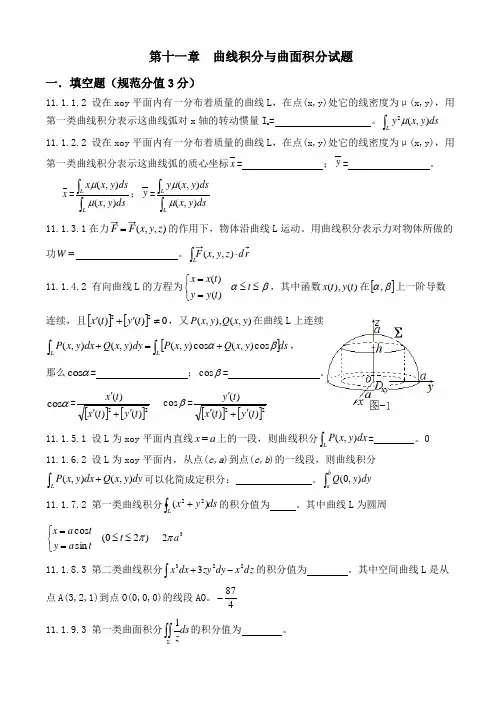 第十一章　曲线积分与曲面积分试题
一．填空题（规范分值3分）
11.1.1.2 设在xoy平面内有一分布着质量的曲线L，在点(x,y)处它的线密度为μ(x,y)，用
第一类曲线积分表示这曲线弧对x轴的转动惯量Iₓ=　　　　。∫_L y²μ(x,y)ds
11.1.2.2 设在xoy平面内有一分布着质量的曲线L，在点(x,y)处它的线密度为μ(x,y)，用
第一类曲线积分表示这曲线弧的质心坐标x̄=　　　　；ȳ=　　　　。
x̄=∫_L xμ(x,y)ds / ∫_L μ(x,y)ds；ȳ=∫_L yμ(x,y)ds / ∫_L μ(x,y)ds
11.1.3.1在力F⃗=F⃗(x,y,z)的作用下，物体沿曲线L运动。用曲线积分表示力对物体所做的
功W=　　　　。∫_L F⃗(x,y,z)·dr⃗
11.1.4.2 有向曲线L的方程为{x=x(t) y=y(t) α≤t≤β，其中函数x(t),y(t)在[α,β]上一阶导数
连续，且[x′(t)]²+[y′(t)]²≠0，又P(x,y),Q(x,y)在曲线L上连续
∫_L P(x,y)dx+Q(x,y)dy=∫_L [P(x,y)cosα+Q(x,y)cosβ]ds，
那么cosα=　　　　；cosβ=　　　　。
cosα=x′(t)/√([x′(t)]²+[y′(t)]²)　cosβ=y′(t)/√([x′(t)]²+[y′(t)]²)
z
a
Σ
h
o
D_xy
a
y
x
a
图-1
11.1.5.1 设L为xoy平面内直线x=a上的一段，则曲线积分∫_L P(x,y)dx=　　　　。0
11.1.6.2 设L为xoy平面内，从点(c,a)到点(c,b)的一线段，则曲线积分
∫_L P(x,y)dx+Q(x,y)dy可以化简成定积分：　　　　。∫_a^b Q(0,y)dy
11.1.7.2 第一类曲线积分∮_L(x²+y²)ds的积分值为　　。其中曲线L为圆周
{x=acost y=asint (0≤t≤2π) 2πa³
11.1.8.3 第二类曲线积分∫x³dx+3zy²dy−x²dz的积分值为　　　。其中空间曲线L是从
点A(3,2,1)到点O(0,0,0)的线段AO。−87/4
11.1.9.3 第一类曲面积分∬_Σ 1/z ds的积分值为　　　。